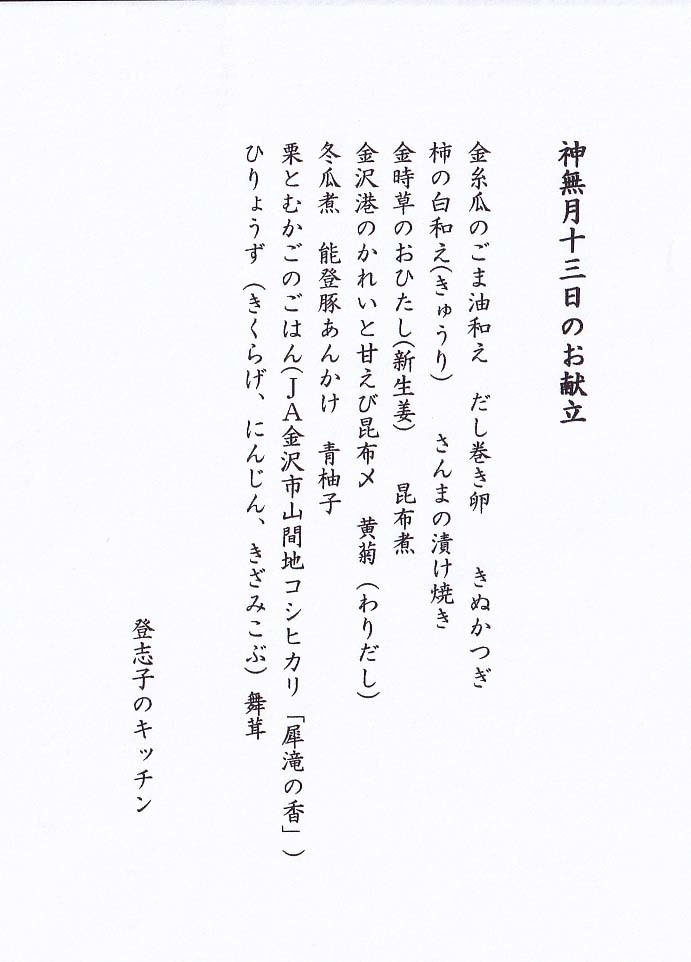 神無月十三日のお献立
金糸瓜のごま油和え　だし巻き卵　きぬかつぎ
柿の白和え(きゅうり)　さんまの漬け焼き
金時草のおひたし(新生姜)　昆布煮
金沢港のかれいと甘えび昆布〆　黄菊(わりだし)
冬瓜煮　能登豚あんかけ　青柚子
栗とむかごのごはん(ＪＡ金沢市山間地コシヒカリ「犀滝の香」)
ひりょうず(きくらげ、にんじん、きざみこぶ)舞茸
登志子のキッチン